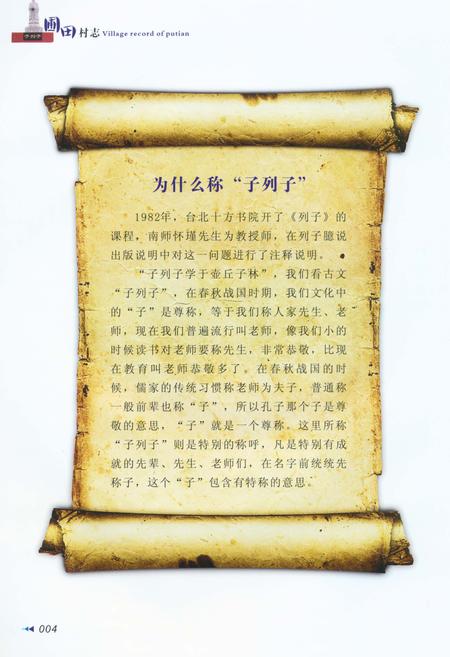 子列子
圃田村志 Village record of putian
为什么称“子列子”
1982年，台北十方书院开了《列子》的
课程，南师怀瑾先生为教授师，在列子臆说
出版说明中对这一问题进行了注释说明。
“子列子学于壶丘子林”，我们看古文
“子列子”，在春秋战国时期，我们文化中
的“子”是尊称，等于我们称人家先生、老
师，现在我们普遍流行叫老师，像我们小的
时候读书对老师要称先生，非常恭敬，比现
在教育叫老师恭敬多了。在春秋战国的时
候，儒家的传统习惯称老师为夫子，普通称
一般前辈也称“子”，所以孔子那个子是尊
敬的意思，“子”就是一个尊称。这里所称
“子列子”则是特别的称呼，凡是特别有成
就的先辈、先生、老师们，在名字前统统先
称子，这个“子”包含有特称的意思。
004